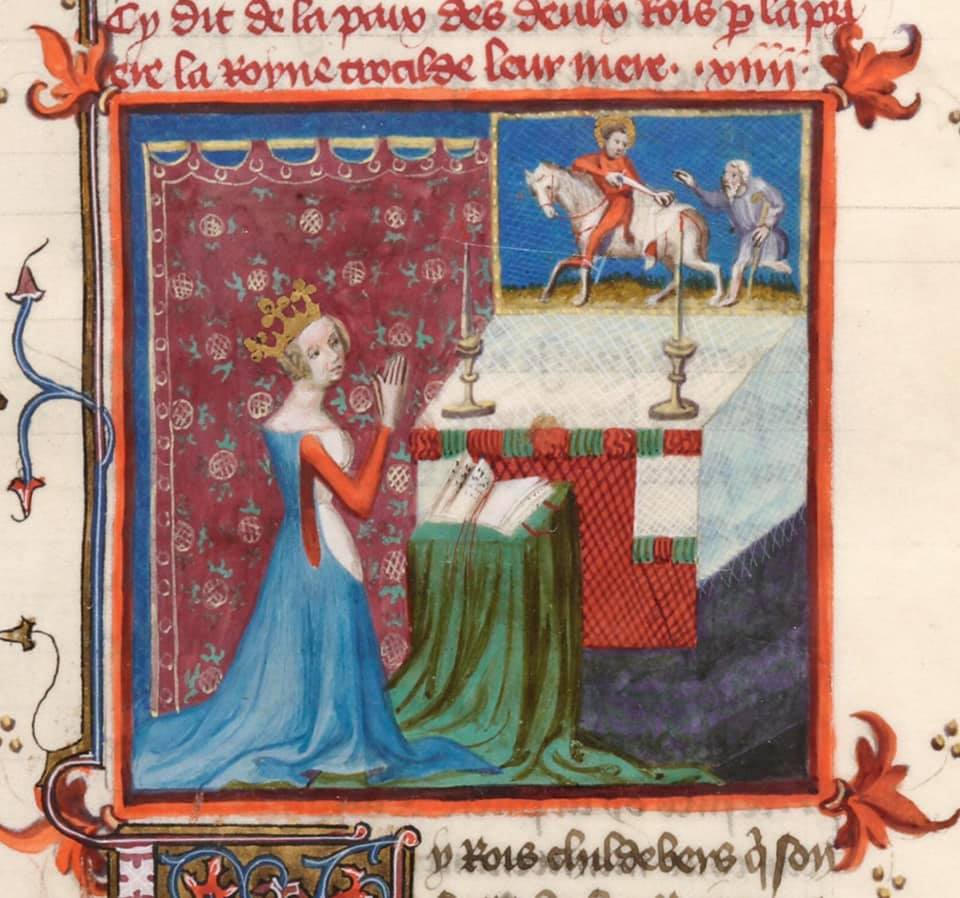 Cy dit de la paix des deulx Rois p la pri
ere la Royne crotilde leur mere. .xiiii.
y Rois childebers q̇ son